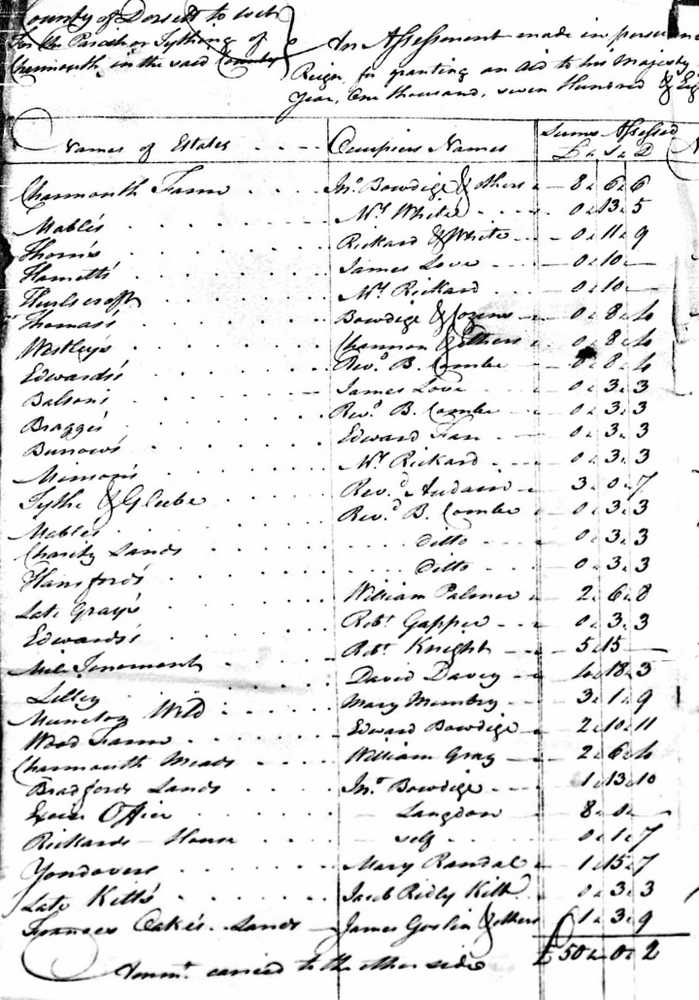 County of Dorsett to wit
For the Parish or Tything of
Charmouth in the said County
An Assessment made in persuance
Reign for granting an aid to his Majesty
Year, One thousand, seven Hundred &
Names of Estates - - - - Occupiers Names Sums Assessed
£ s D
Charmouth Farm Jno. Bowdige & others 8 6 6
Mables Mr White 0 13 5
Thorn's Rickard & White 0 11 9
Hamett's James Love 0 10 —
Hurlscroft Mr Rickard 0 10 —
Thomas's Bowdige & Cozens 0 8 4
Westley's Channon & Others 0 8 4
Edwards's Revd. B. Combe 0 8 4
Balson's James Love 0 3 3
Bragge's Revd. B. Combe 0 3 3
Burrows's Edward Farr 0 3 3
Mimson's Mr Rickard 0 3 3
Tythe & Glebe Revd. Audain 3 0 7
Mables Revd. B. Combe 0 3 3
Charity Lands ditto 0 3 3
Hansford's ditto 0 3 3
Late Gray's William Palmer 2 6 8
Edwards's Robt. Gapper 0 3 3
Mill Tenement Robt. Knight 5 15 —
Lilley David Davey 4 18 3
Wild Mary Membry 3 1 9
Wood Farm Edward Bowdige 2 10 11
Charmouth Meads William Gray 2 6 4
Bradfords Lands Jno. Bowdige 1 13 10
Excise Office Langdon 8 —
Rickards House self 0 1 7
Yondovers Mary Randal 1 15 7
Late Kitt's Jacob Ridly Kitt 0 3 3
Frances Oake's Lands James Goslin & others 1 3 9
Amount. carried to the other side £ 50 0 2